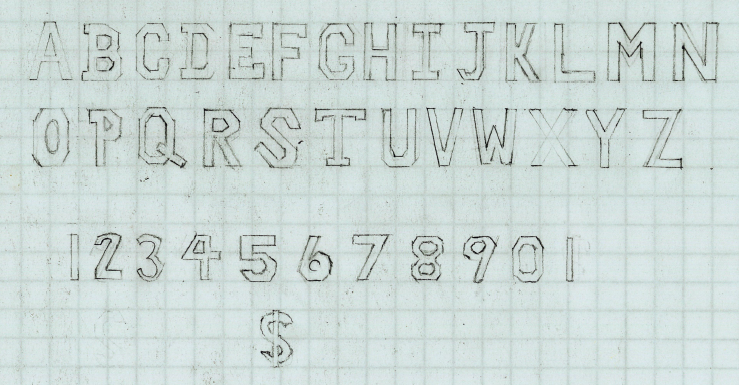 ABCDEFGHIJKLMN
OPQRSTUVWXYZ
12345678901
$